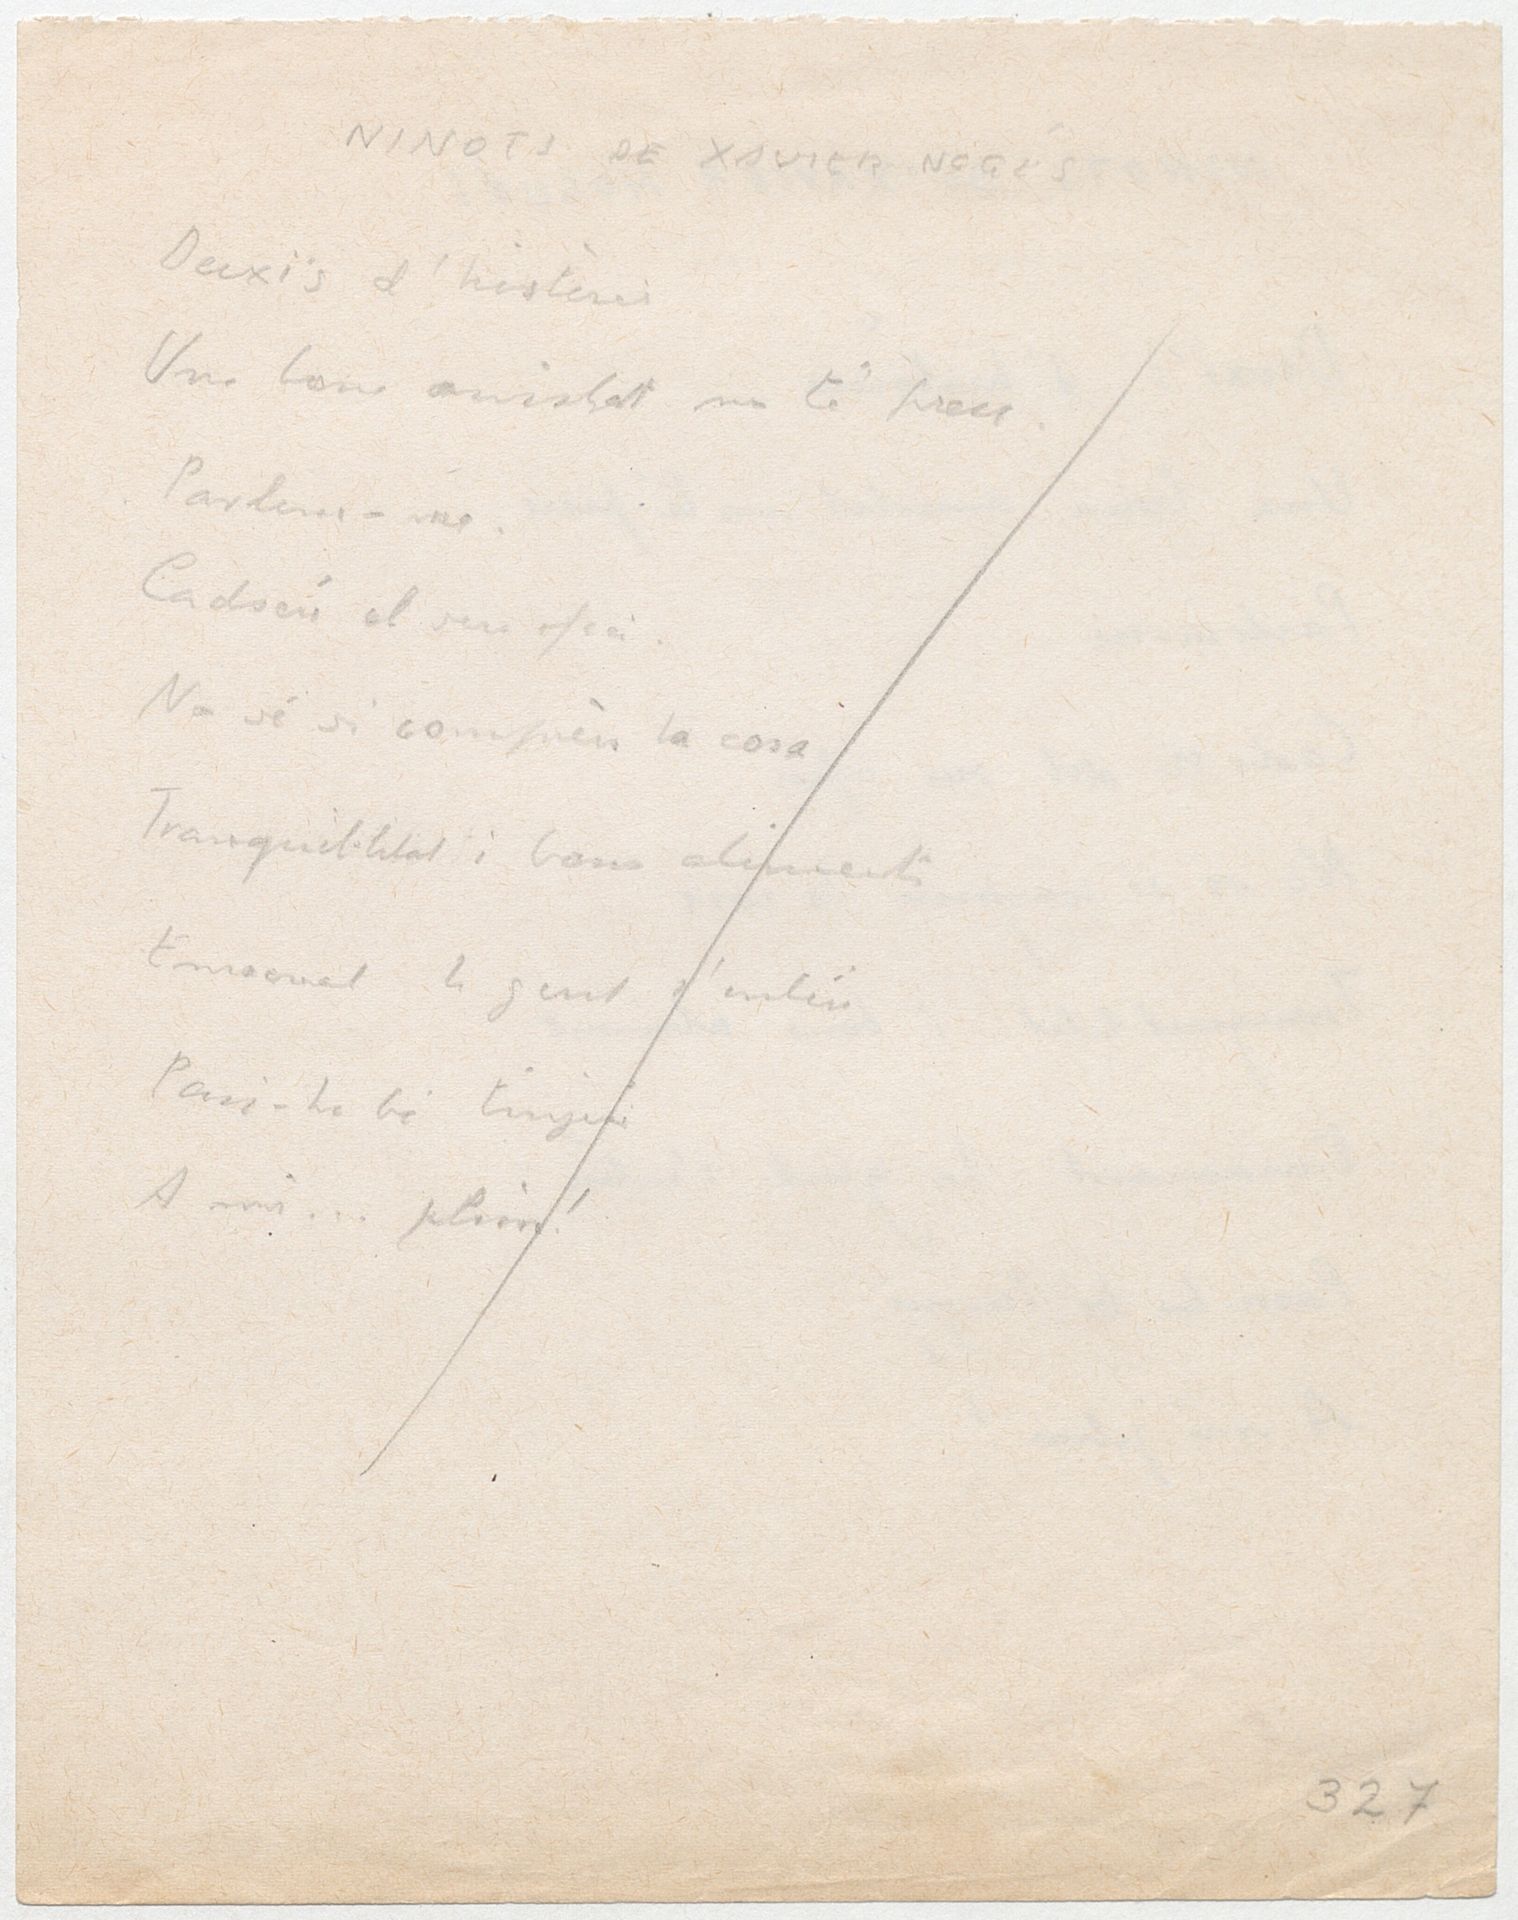 NINOTS DE XAVIER NOGÉS
Deixi's d'histèries
Una bona amistat no té preu.
Parlem-ne.
Cadascú el seu ofici.
No sé si comprèn la cosa
Tranquil·litat i bons aliments
Enraonant la gent s'entén
Passi-ho bé tingui
A mi... plim!
327